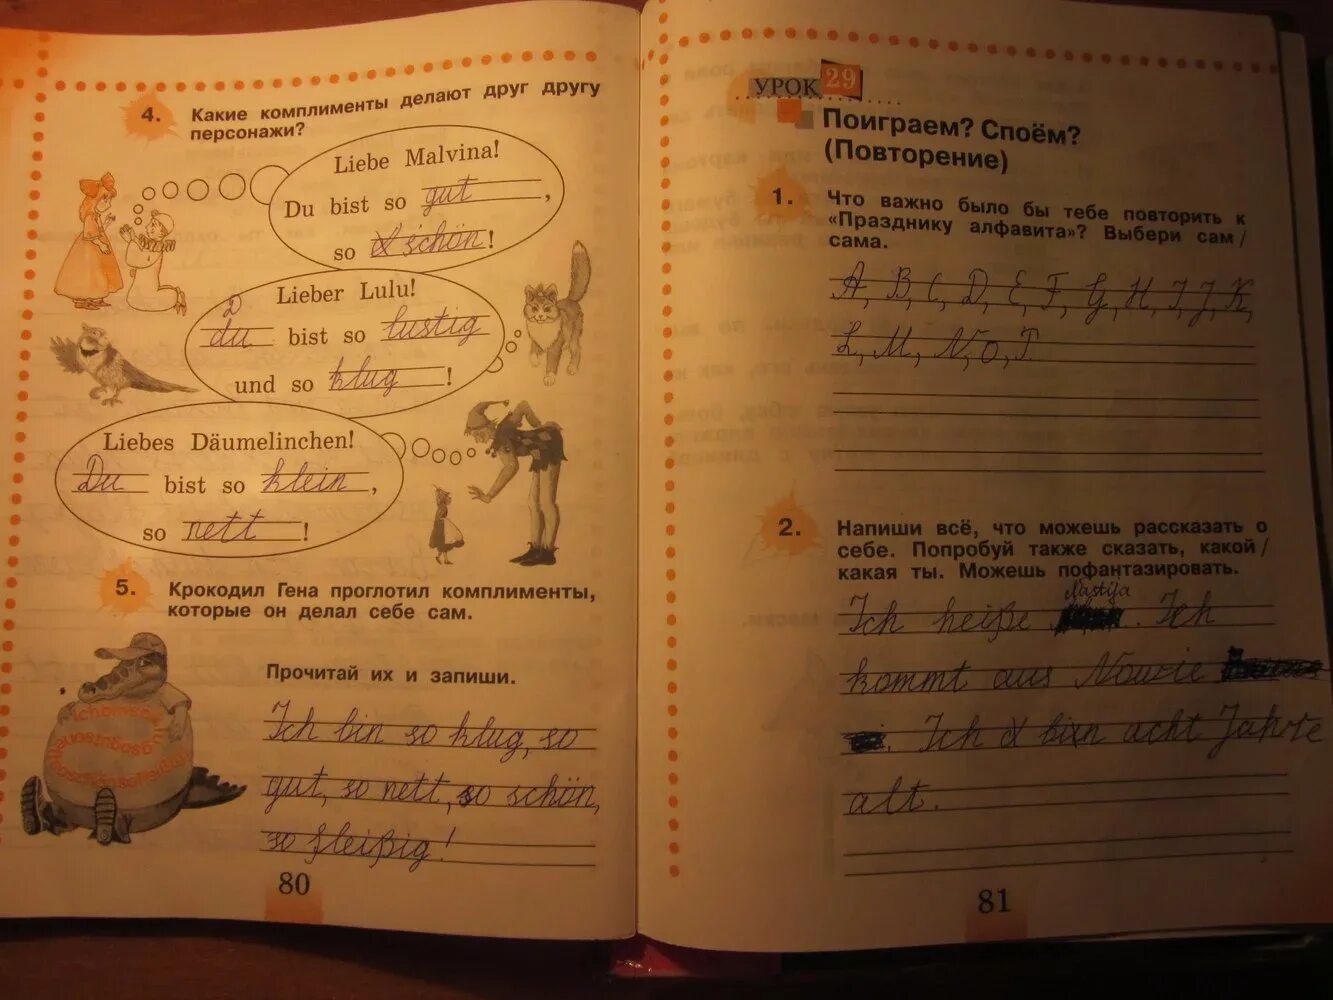 4. Какие комплименты делают друг другу
персонажи?
Liebe Malvina!
Du bist so gut,
so schön!
Lieber Lulu!
Du bist so lustig
und so klug!
Liebes Däumelinchen!
Du bist so klein,
so nett!
5. Крокодил Гена проглотил комплименты,
которые он делал себе сам.
Прочитай их и запиши.
Ich bin so klug, so
gut, so nett, so schön,
so fleißig!
80
УРОК 29
Поиграем? Споём?
(Повторение)
1. Что важно было бы тебе повторить к
«Празднику алфавита»? Выбери сам/
сама.
A, B, C, D, E, F, G, H, I, J, K,
L, M, N, O, P
2. Напиши всё, что можешь рассказать о
себе. Попробуй также сказать, какой/
какая ты. Можешь пофантазировать.
Nastja
Ich heiße . Ich
kommt aus
. Ich bin acht Jahre
alt.
81